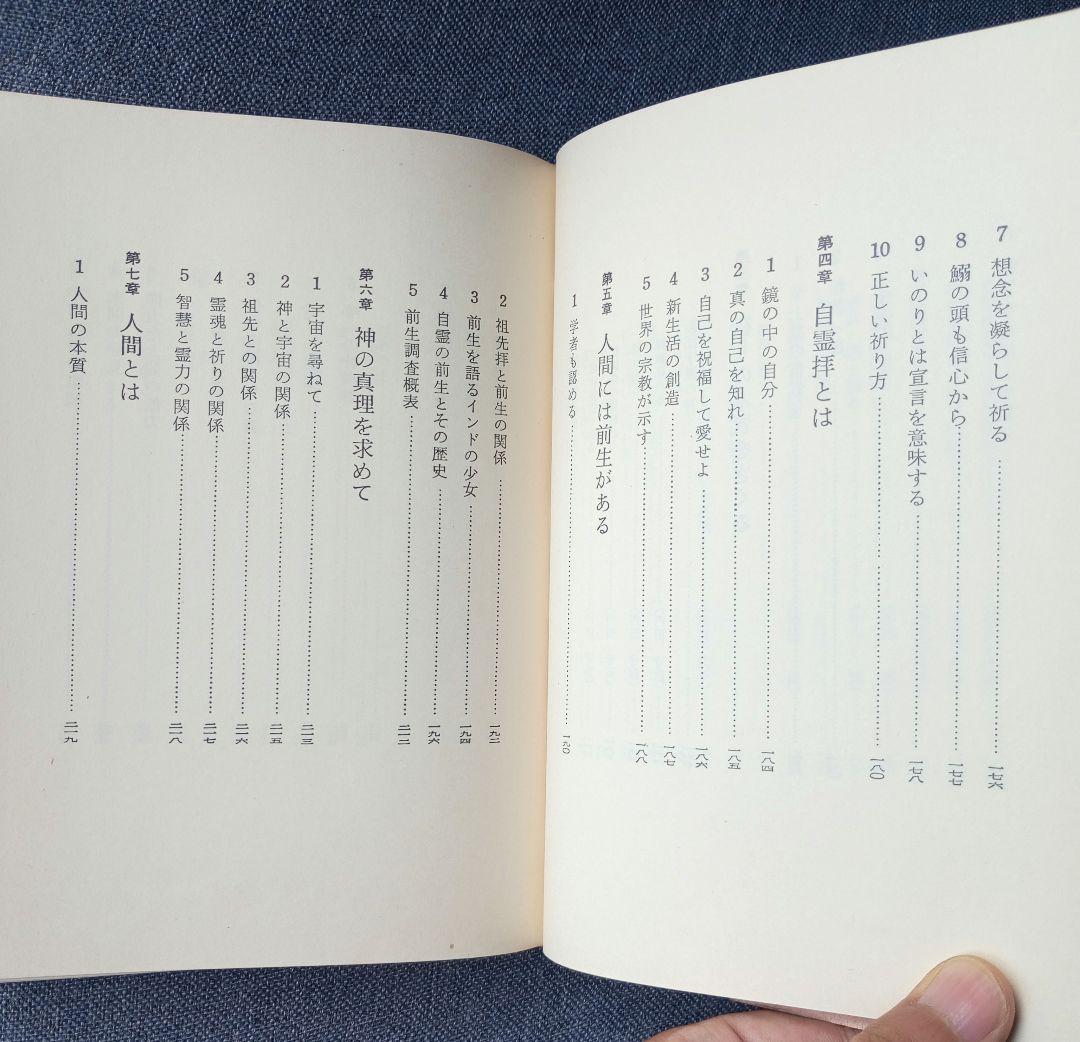 7 想念を凝らして祈る……………一七六
8 鰯の頭も信心から……………一七七
9 いのりとは宣言を意味する……………一七八
10 正しい祈り方……………一八〇
第四章 自霊拝とは
1 鏡の中の自分……………一八四
2 真の自己を知れ……………一八五
3 自己を祝福して愛せよ……………一八六
4 新生活の創造……………一八七
5 世界の宗教が示す……………一八八
第五章 人間には前生がある
1 学者も認める……………一九〇
2 祖先拝と前生の関係……………一九二
3 前生を語るインドの少女……………一九四
4 自霊の前生とその歴史……………一九六
5 前生調査概表……………二一二
第六章 神の真理を求めて
1 宇宙を尋ねて……………二一三
2 神と宇宙の関係……………二一五
3 祖先との関係……………二一六
4 霊魂と祈りの関係……………二一七
5 智慧と霊力の関係……………二一八
第七章 人間とは
1 人間の本質……………二一九